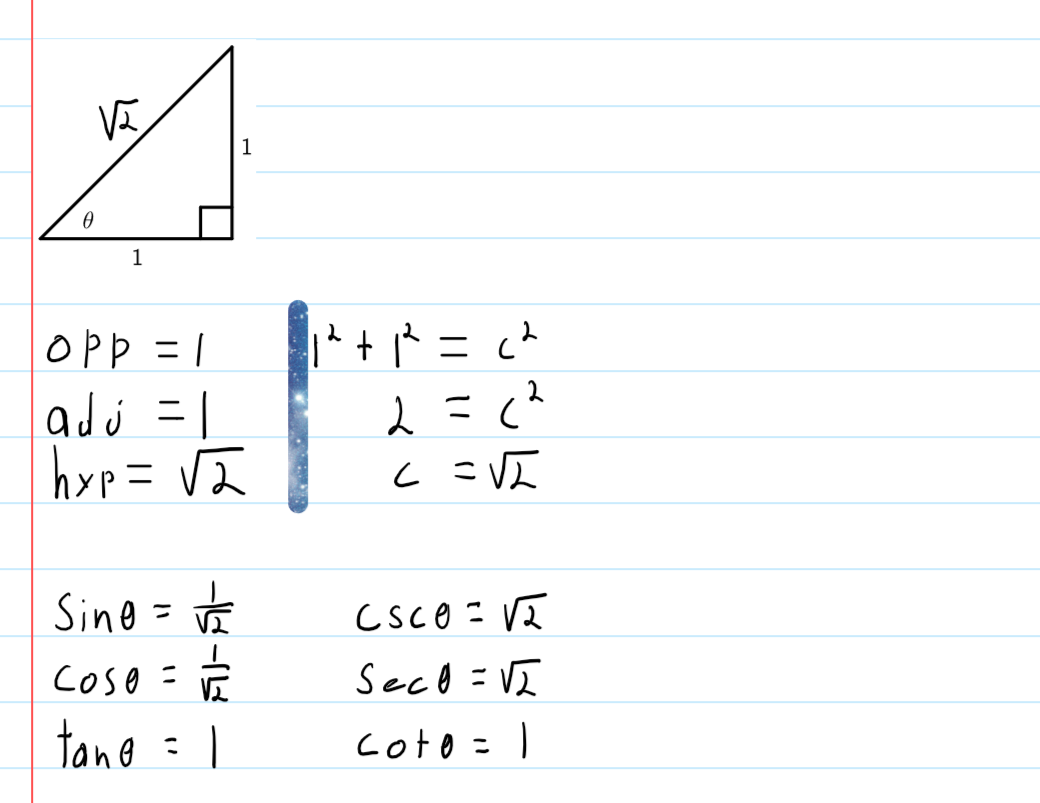 √2
1
θ
1
opp = 1
adj = 1
hyp = √2
1² + 1² = c²
2 = c²
c = √2
Sinθ = 1/√2
cosθ = 1/√2
tanθ = 1
cscθ = √2
Secθ = √2
cotθ = 1